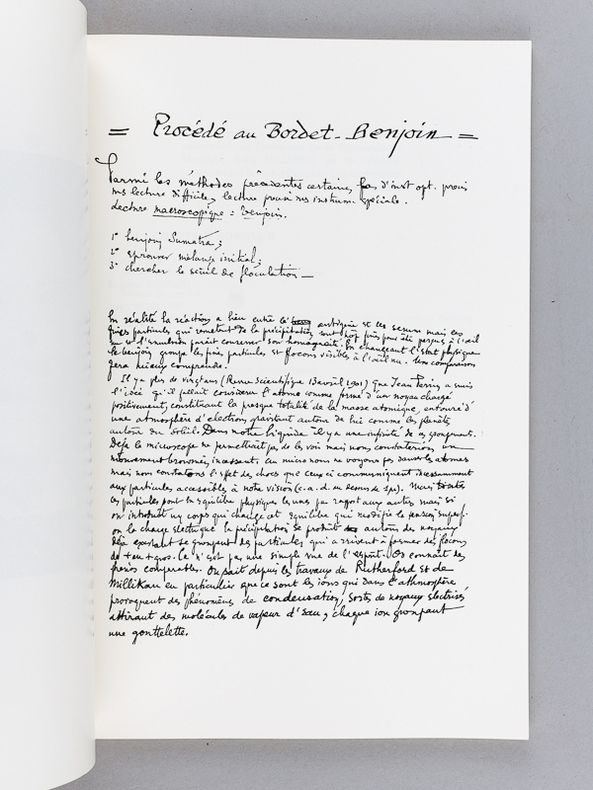 = Procédé au Bordet-Benjoin =
Parmi les méthodes précédentes certaines, pas d'inst opt. précis
lecture difficile, lecture instrum. spéciale.
Lecture macroscopique = benjoin.
1° benjoin Sumatra;
2° éprouver mélange initial;
3° chercher le seuil de floculation —
En réalité la réaction a lieu entre antigène et les serums mais ces
fines particules qui remettent de la précipitation sont trop fines pour être perçues à l'œil
nu et l'émulsion paraît conserver son homogénéité. En changeant l'état physique
le benjoin groupe les fines particules et flocons visibles à l'œil nu. Une comparaison
fera mieux comprendre.
Il y a plus de vingt ans (Revue Scientifique 13 avril 1901) que Jean Perrin a émis
l'idée qu'il fallait considérer l'atome comme formé d'un noyau chargé
positivement, constituant la presque totalité de la masse atomique, entouré d'
une atmosphère d'électrons gravitant autour de lui comme les planètes
autour du soleil. Dans notre liquide il y a une infinité de ces groupements.
Déjà le microscope ne permettrait pas de les voir mais nous constaterions un
mouvement brownien, incessant, au micro nous ne voyons pas danser les atomes
mais nous constatons l'effet des chocs que ceux ci communiquent incessamment
aux particules accessibles à notre vision (c.a.d. au dessus de 2µ). Mais toutes
ces particules sont en équilibre physique les unes par rapport aux autres mais si
on introduit un corps qui change cet équilibre qui modifie la tension superf.
ou la charge électrique la précipitation se produit autour des noyaux
déjà existant se groupent des particules qui arrivent à former des flocons
de + en + gros. Ce n'est pas une simple vue de l'esprit. On connait des
faits comparables. On sait depuis les travaux de Rutherford et de
Millikan en particulier que ce sont les ions qui dans l'athmosphère
provoquent des phénomènes de condensation, sortes de noyaux électrisés
attirant des molécules de vapeur d'eau, chaque ion groupant
une gouttelette.